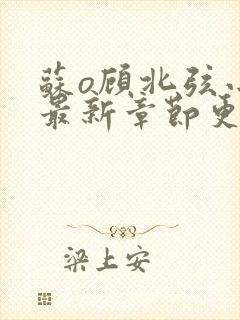 蘇o顾北弦
最新章節更
梁上安